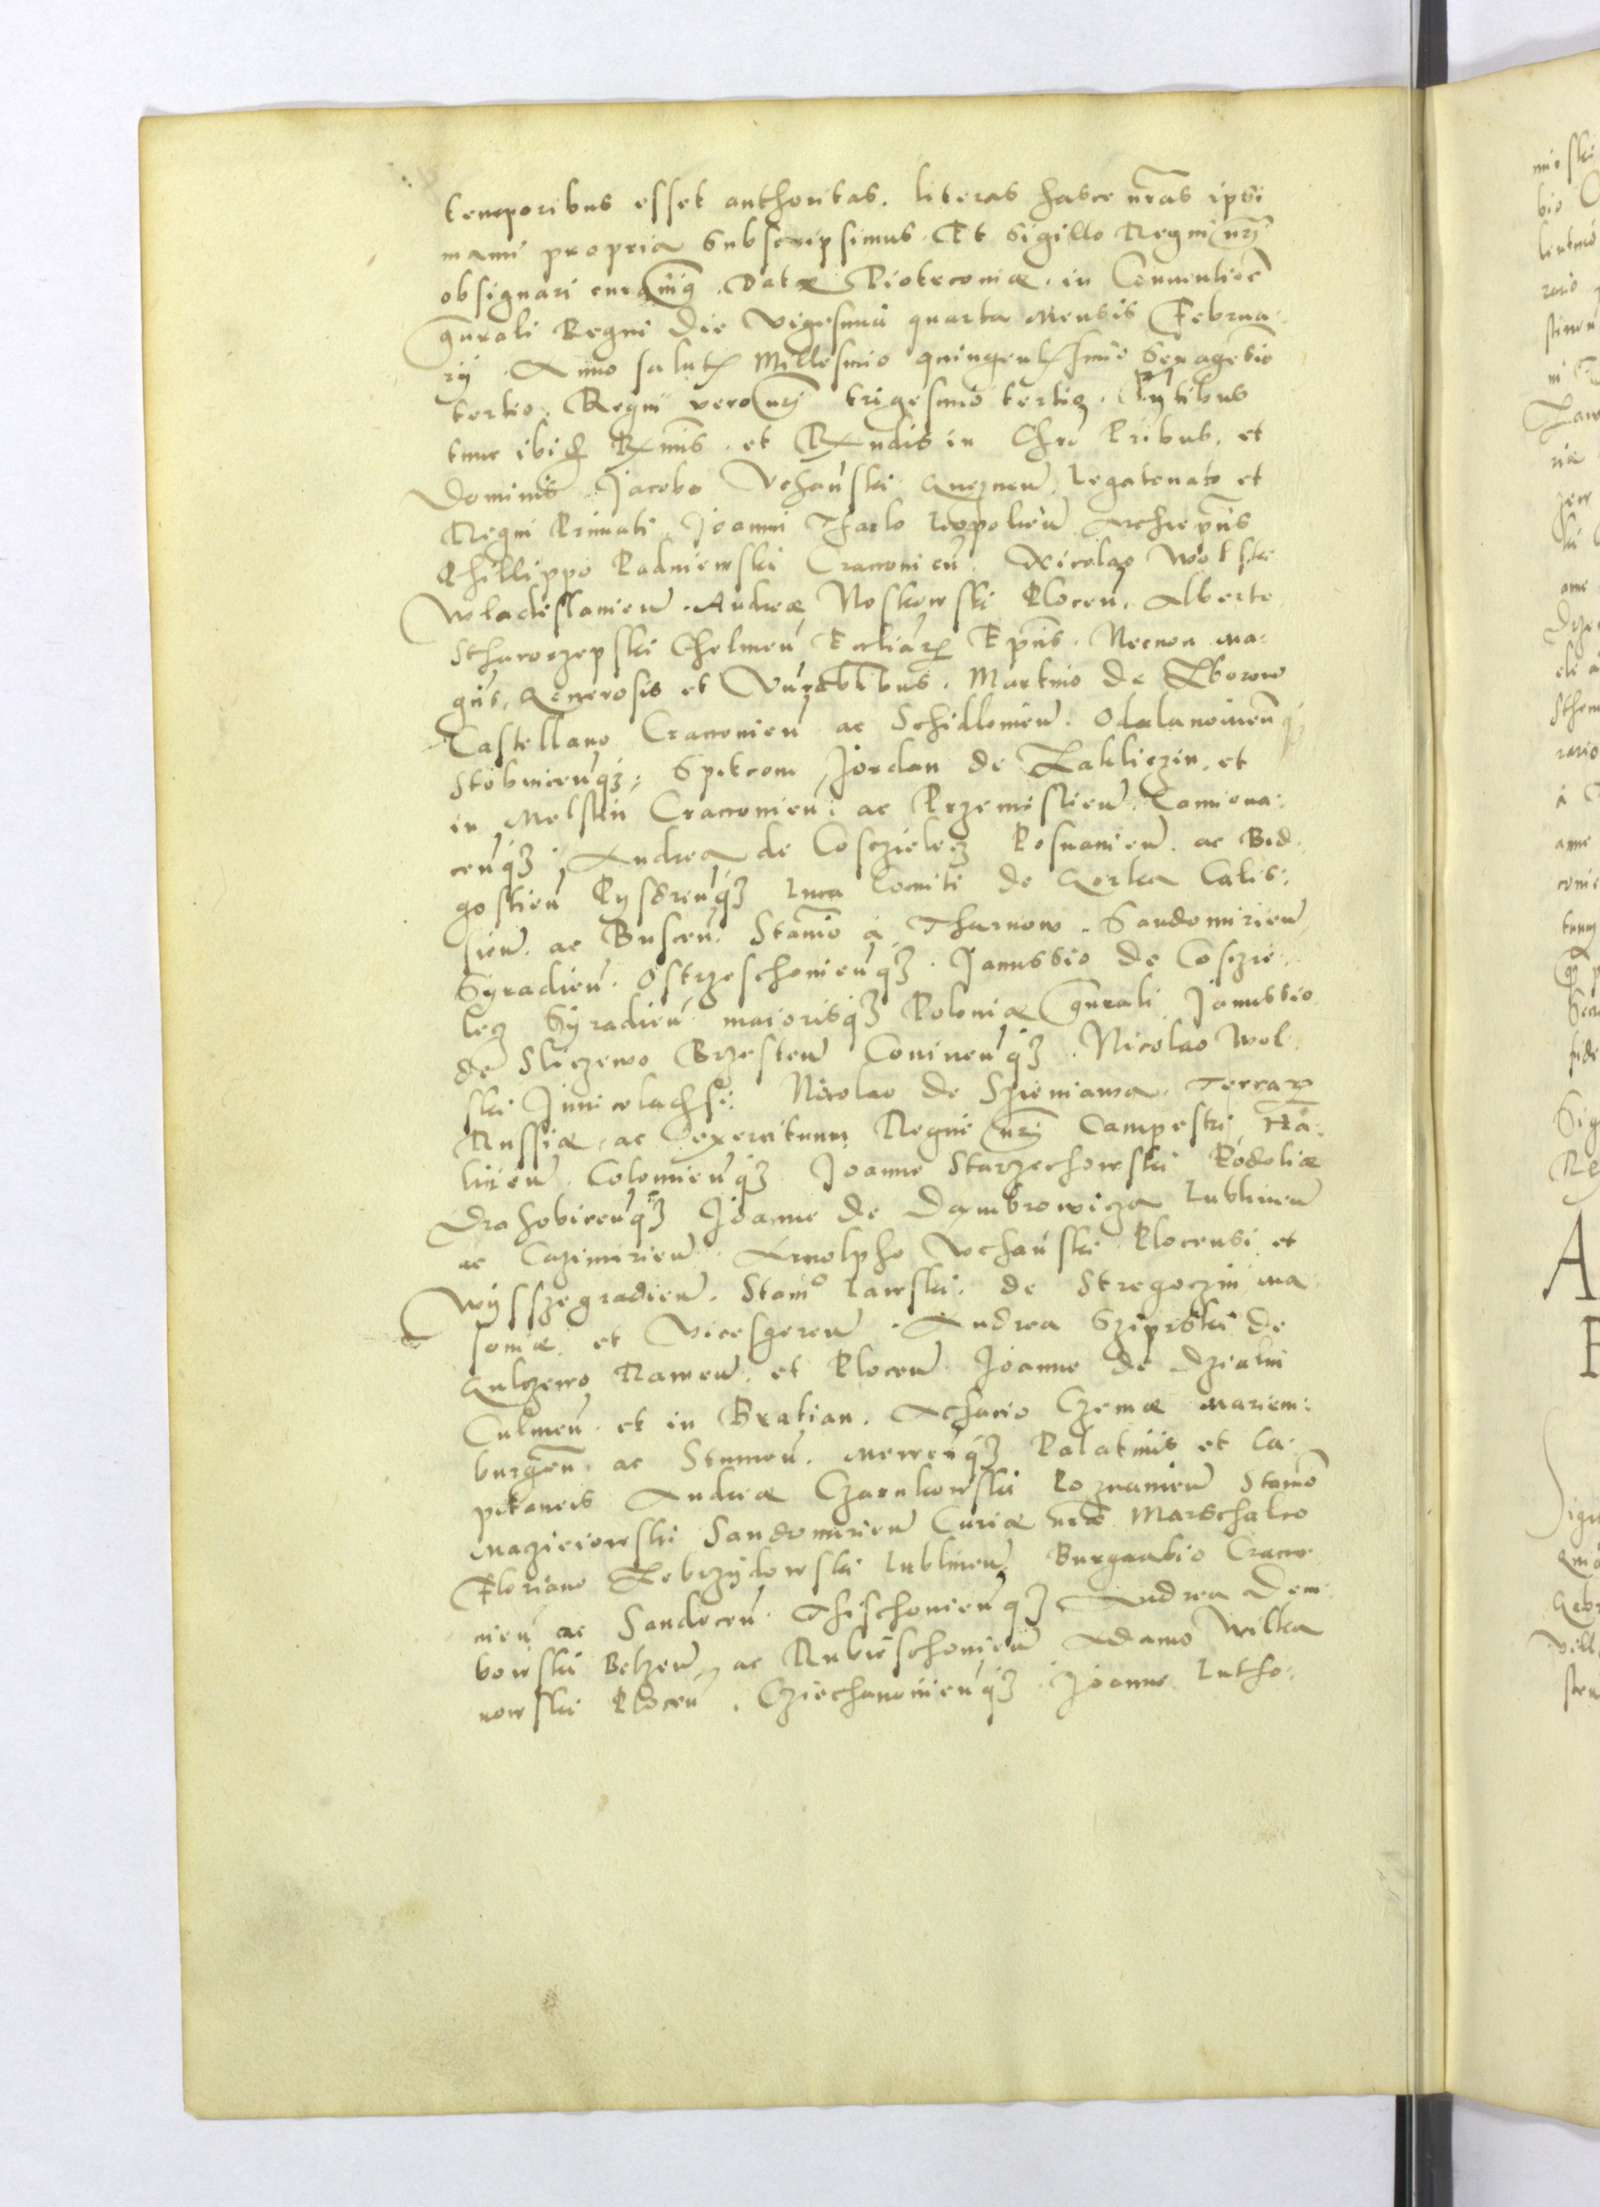 temporibus esset authoritas. literas hasce nr̃as ipsi
manu propria subscripsimus. Et sigillo Regni nr̃i
obsignari curauim9. Datæ Piotrcoviæ. in Conuentioē
gñrali Regni die vigesima quarta Mensis Februa:
rij. Anno salutis Millesimo quingentesimo sexagesimo
tertio. Regni vero nr̃i trigesimo tertio. Pñtibus
tunc ibidem Rmis. et Rndis in Chro Pribus, et
Dominis Jacobo Vchański Gneznen̄. Legatenato et
Regni Primati, Joanni Tharlo Leopolien̄ Archiepis
Phillippo Padniewski Cracouien̄. Nicolao Wolski
Wladislauien̄. Andrea Noskowski Plocen̄. Alberto
Stharorzepski Chelmen̄ Ecliar̄ Epis. Necnon Ma:
gcis, Generosis et Venerabilibus. Martino de Zborow
Castellano Cracouien̄ ac Schidlouien̄. Odalanouien̄
Stobnicen̄q3: Spitcone Jordan de Zakliczin. et
in Melstin Cracouien̄: ac Przemislien̄. Camiona:
cen̄q3, Andrea de Cosczielecz Posnanien̄. ac Bid:
gostien̄ Pysdren̄q3 Luca Comiti de Gorka Calis:
sien̄. ac Buscen̄. Stanio à Tharnow. Sandomirien̄
Syradien̄. Ostrzeschouien̄q3. Janussio de Coszie:
lecz Syradien̄ maiorisq3 Poloniæ gñrali Janussio
de Sluzewo Brzesten̄ Coninen̄q3. Nicolao Wol:
ski Junicolachsi: Nicolao de Szieniawa. Terrar̄
Russiæ. ac exercituum Regni nr̃i Campestri, Ha:
licien̄. Colomien̄q3 Joanne Starzechowski Podoliæ
Drohobicen̄q3 Joanne de Dąmbrowicza Lublinen̄
ac Cazimirien̄. Arnolpho Vchański Plocensi et
Wÿsszegradien̄. Stanio Lawski. de Stregoczin Ma
soniæ. et Vicesgeren̄. Andrea Szierski de
Gulczewo Rawen̄. et Plocen̄. Joanne de Dzialin
Culmen̄. et in Bratian. Achacio Czema Mariem:
burgen̄. ac Stumen̄. Mewen̄q3 Palatinis et Ca:
pitaneis Andrea Czarnkowski Poznanien̄ Stanio
Maczieiowski Sandomirien̄ Curiæ nr̃æ Marschalco
Floriano Zebrzÿdowski Lublinen̄ Burgrabio Craco
uien̄ ac Sandecen̄. Thischouien̄q3 Andrea Dem
bowski Belzen̄, ac Rubieschouien̄ Adamo Wilka
nowski Plocen̄. Cziechanouien̄q3. Joanne Lutho: